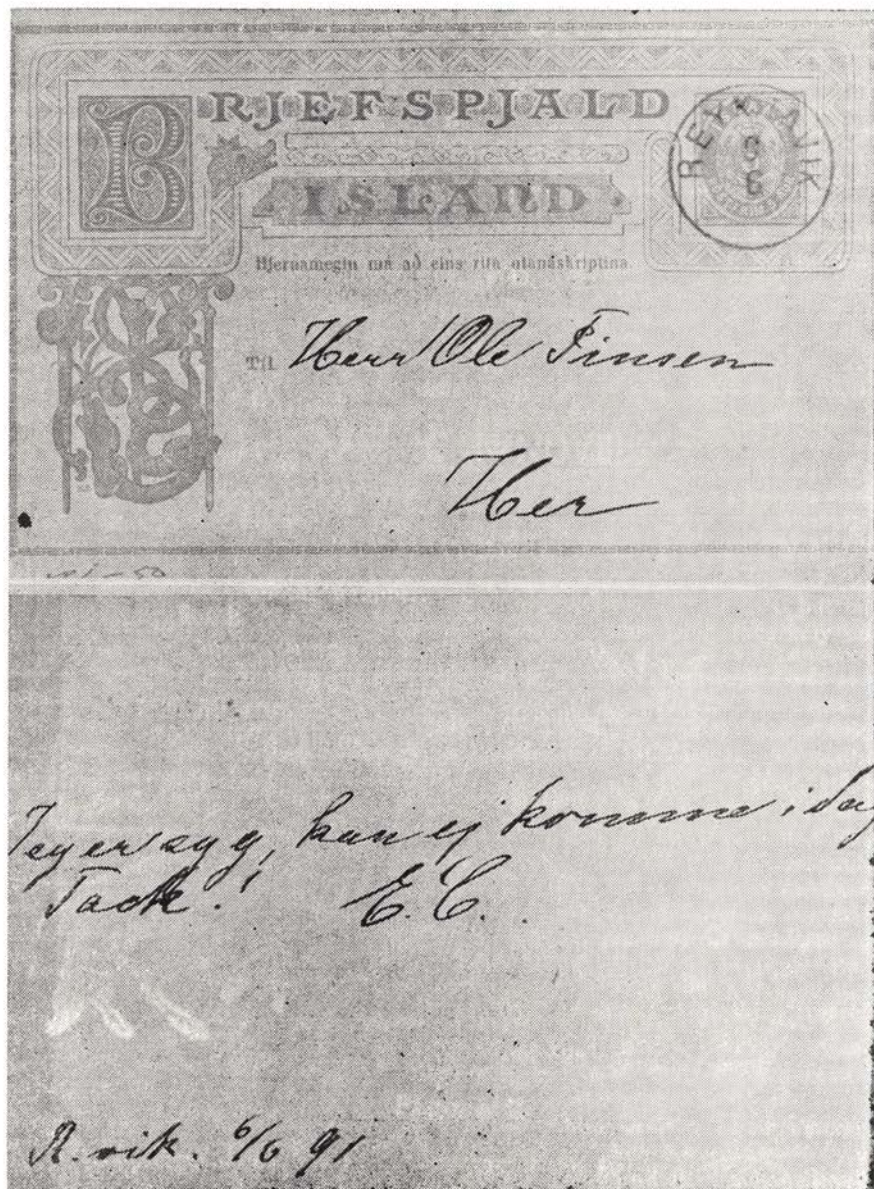 BRJEFSPJALD
ISLAND
REYKJAVIK
6
Hjernamegin má að eins rita utanáskriptina.
Til Herr Ole Finsen
Her
Jeg er syg, kan ej komme i dag
Tack! E.C.
R.vik. 6/6 91